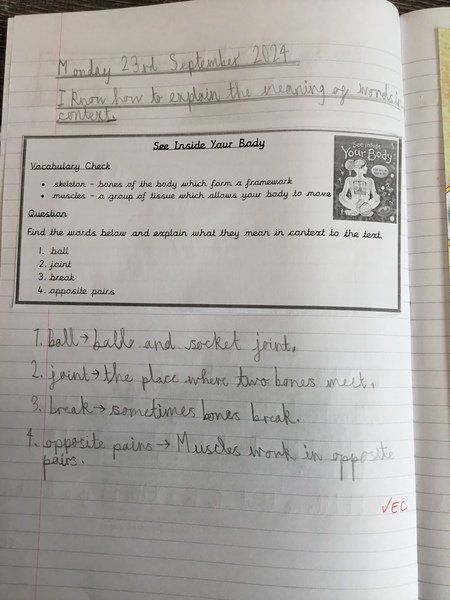 Monday 23rd September 2024
I know how to explain the meaning of words in
context.
See Inside Your Body
Vocabulary Check
• skeleton - bones of the body which form a framework
• muscles - a group of tissue which allows your body to move
Question
Find the words below and explain what they mean in context to the text.
1. ball
2. joint
3. break
4. opposite pairs
See inside
Your Body
1. ball → ball and socket joint.
2. joint → the place where two bones meet.
3. break → sometimes bones break.
4. opposite pairs → Muscles work in opposite
pairs.
✓EC